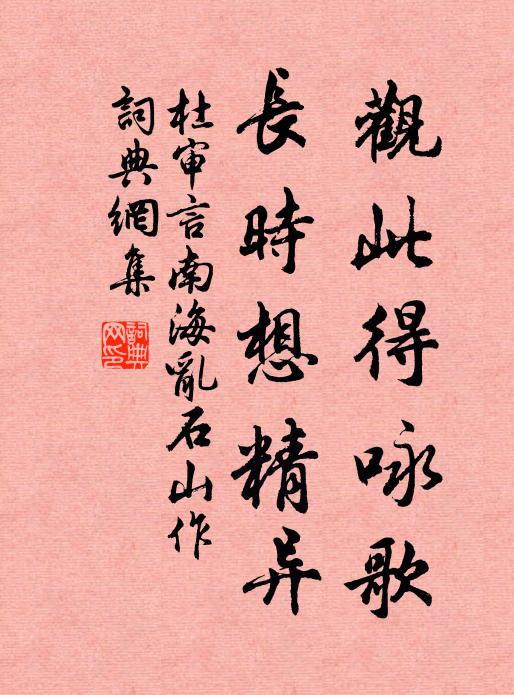 觀此得咏歌
長時想精异
杜审言南海亂石山作
詞典網集
詞典网印